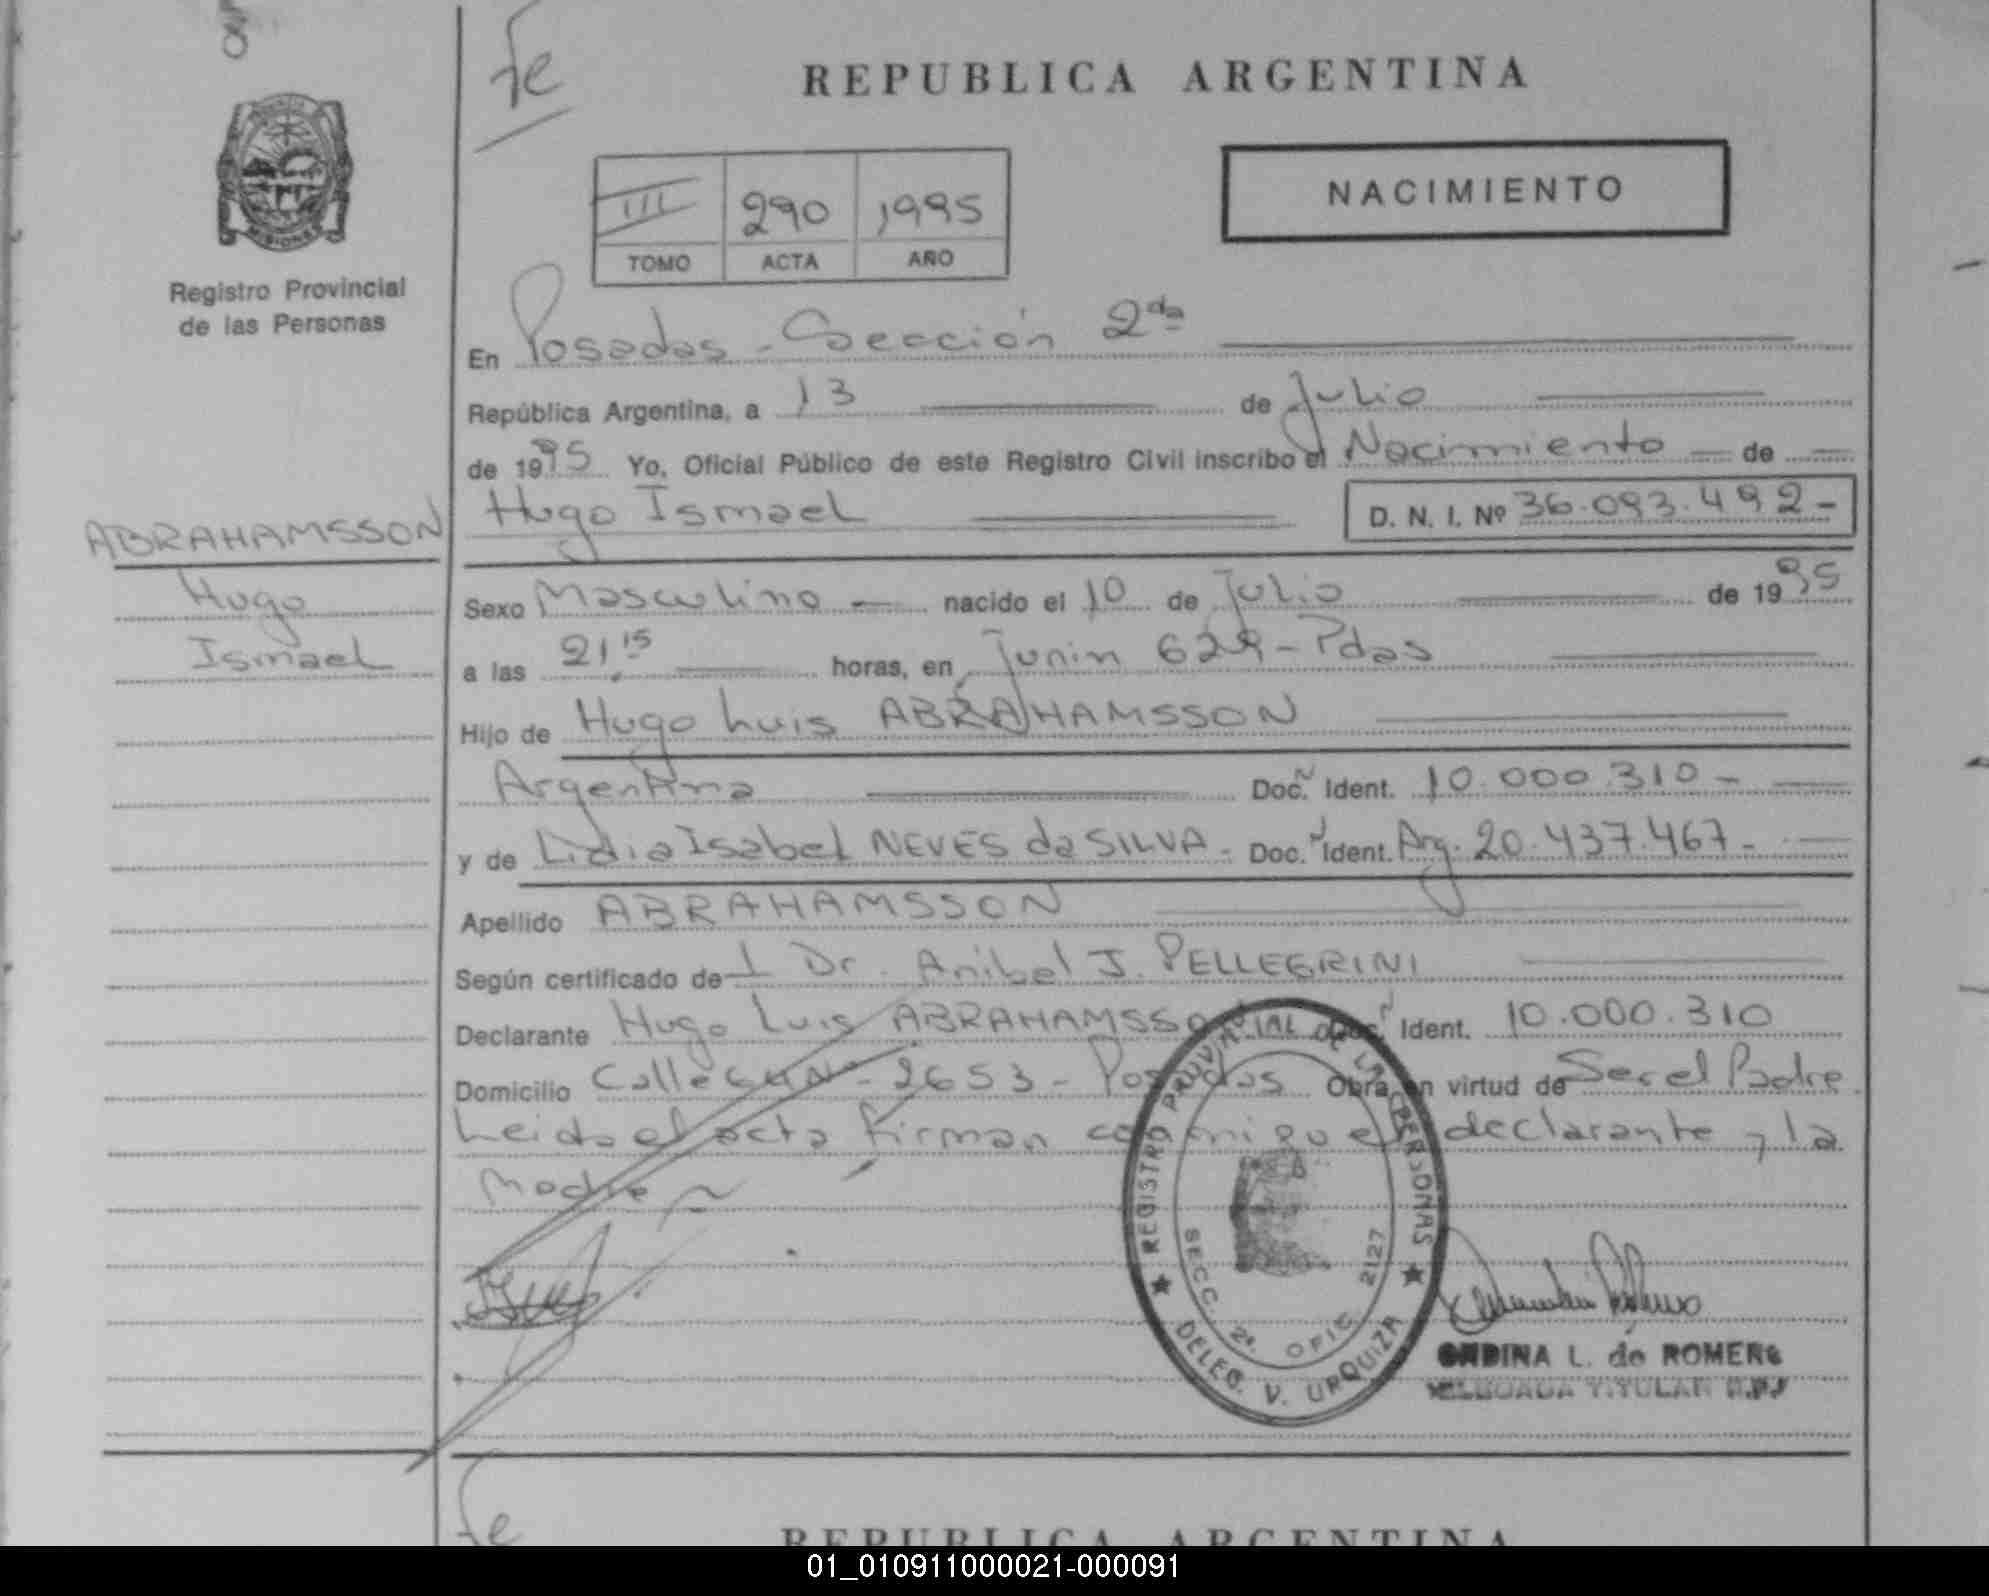 Fe
REPUBLICA ARGENTINA
NACIMIENTO
III 290 1995
TOMO ACTA AÑO
MISIONES
Registro Provincial
de las Personas
En Posadas - Sección 2da
República Argentina, a 13 de Julio
de 1995 Yo, Oficial Público de este Registro Civil inscribo el Nacimiento de
ABRAHAMSSON
Hugo
Ismael
Hugo Ismael D. N. I. Nº 36.093.492-
Sexo Masculino nacido el 10 de Julio de 1995
a las 21.15 horas, en Junin 629 - Pdas
Hijo de Hugo Luis ABRAHAMSSON
Argentina Doc. Ident. 10.000.310 -
y de Lidia Isabel NEVES da SILVA - Doc. Ident. Arg. 20.437.467 -
Apellido ABRAHAMSSON
Según certificado de l Dr. Anibal J. PELLEGRINI
Declarante Hugo Luis ABRAHAMSSON Doc. Ident. 10.000.310
Domicilio Calle 2653 - Posadas Obra en virtud de Ser el Padre.
Leida el acta firman conmigo el declarante y la
Madre
REGISTRO PROVINCIAL DE LAS PERSONAS
SECC. 2ª. OFIC. 2127
DELEG. V. URQUIZA
ONDINA L. de ROMERO
DELEGADA TITULAR R.P.
Fe
REPUBLICA ARGENTINA
01_010911000021-000091